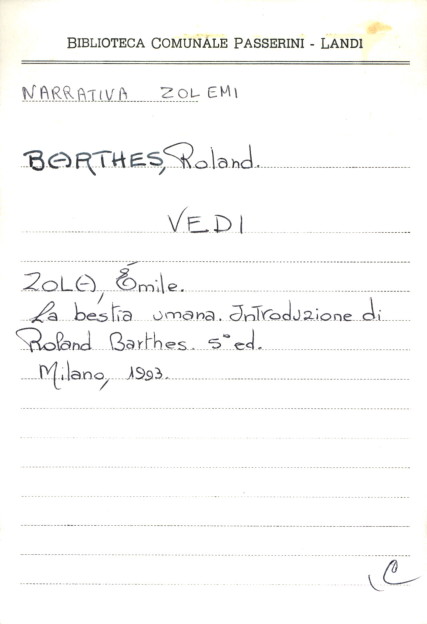 BIBLIOTECA COMUNALE PASSERINI - LANDI
NARRATIVA ZOL EMI
BARTHES, Roland.
VEDI
ZOLA, Émile.
La bestia umana. Introduzione di
Roland Barthes. 5ª ed.
Milano, 1993.